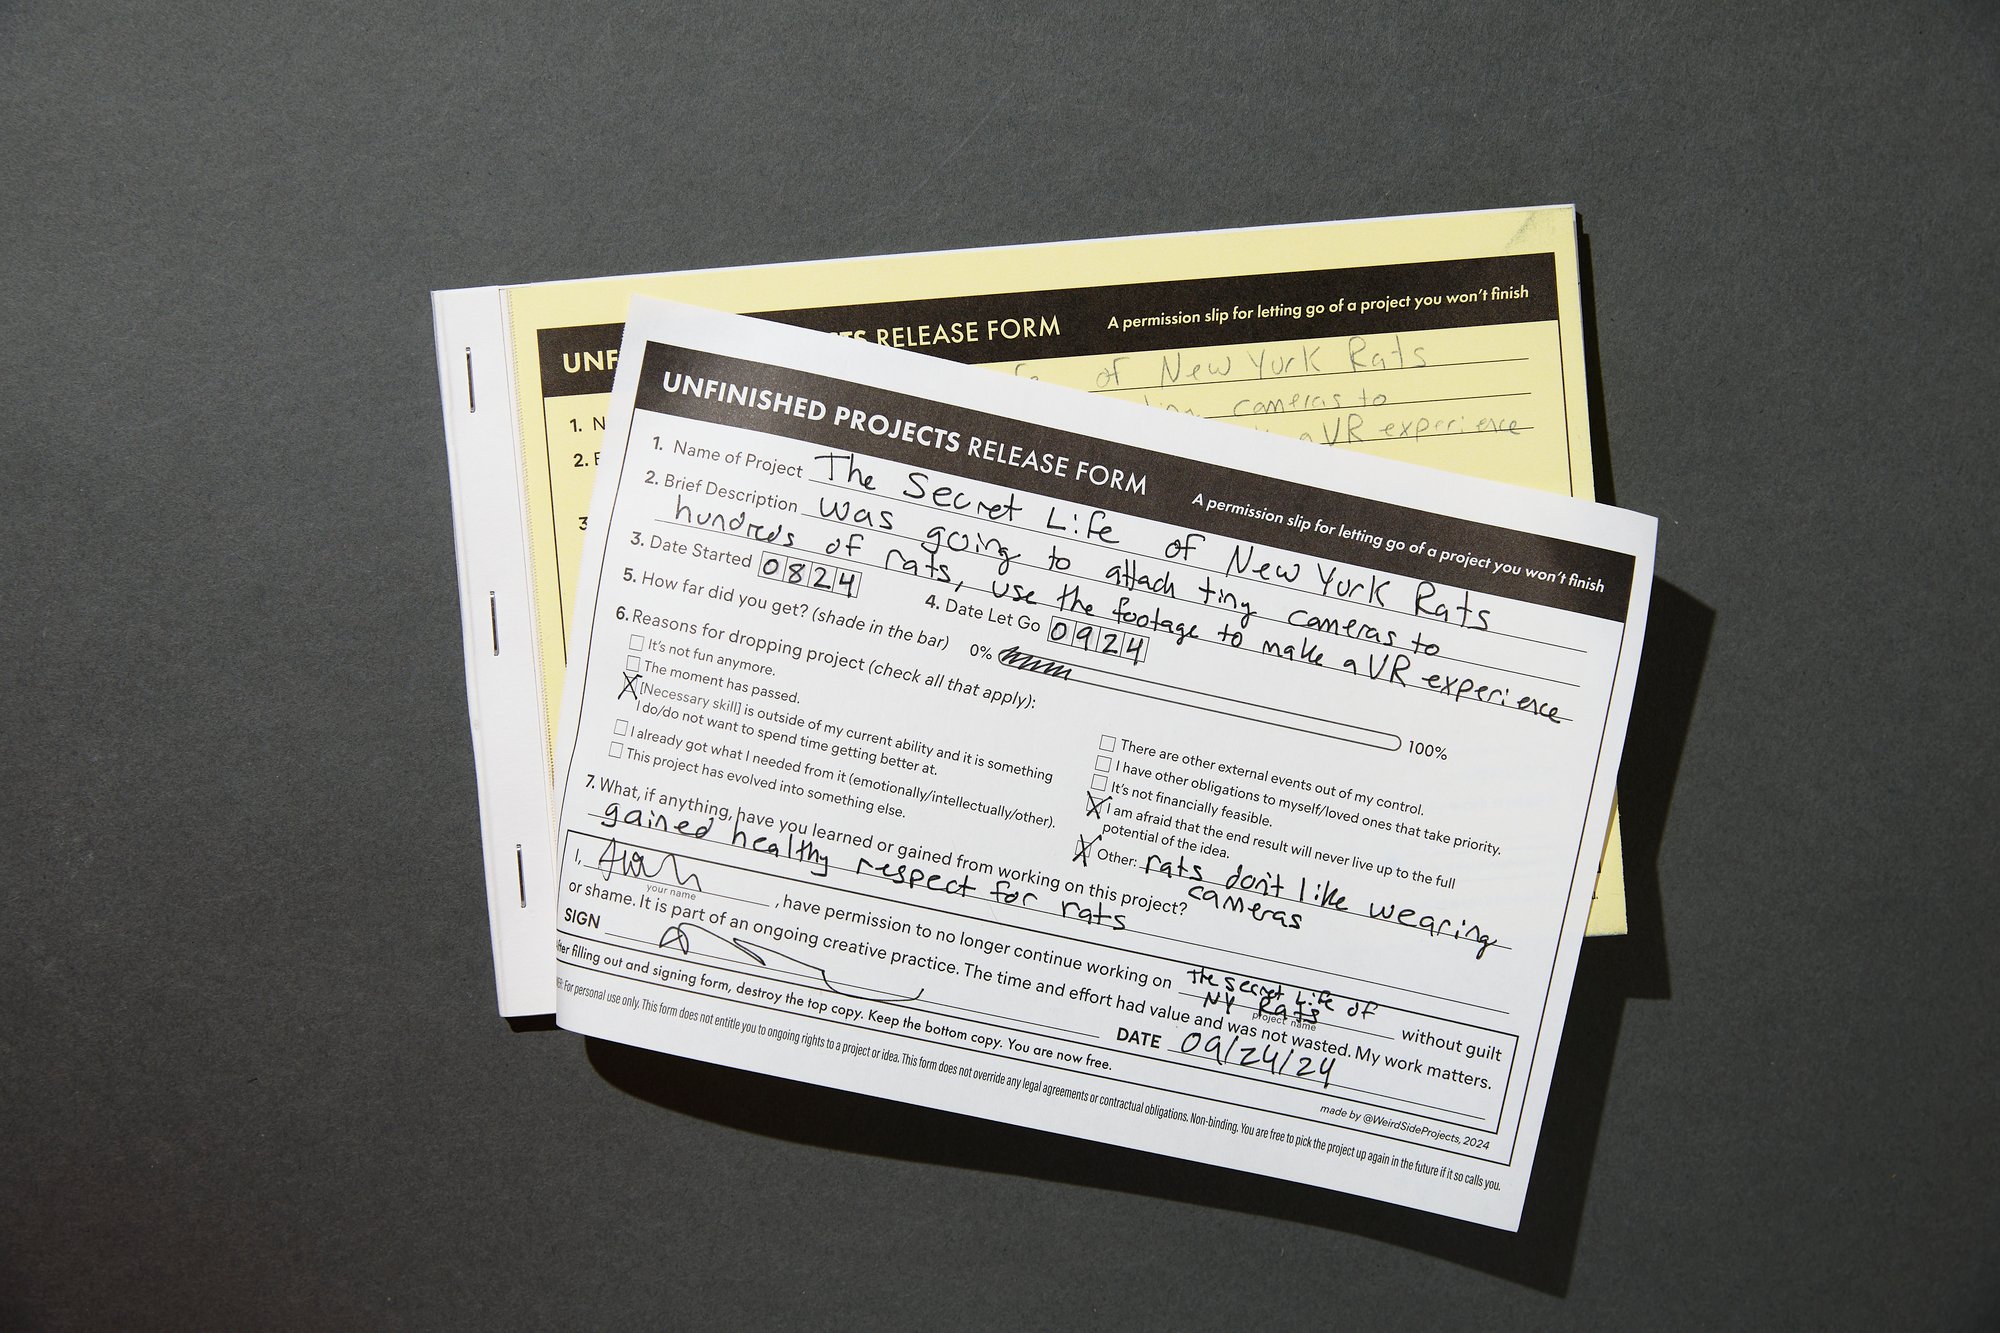 UNF
TS RELEASE FORM
A permission slip for letting go of a project you won't finish
of New York Rats
1. N
cameras to
2.
a VR experience
3
UNFINISHED PROJECTS RELEASE FORM
A permission slip for letting go of a project you won't finish
1. Name of Project The Secret Life of New York Rats
2. Brief Description was going to attach tiny cameras to
hundreds of rats, use the footage to make a VR experience
3. Date Started 0824
4. Date Let Go 0924
5. How far did you get? (shade in the bar) 0% 100%
6. Reasons for dropping project (check all that apply):
It's not fun anymore.
The moment has passed.
X [Necessary skill] is outside of my current ability and it is something
I do/do not want to spend time getting better at.
I already got what I needed from it (emotionally/intellectually/other).
This project has evolved into something else.
There are other external events out of my control.
I have other obligations to myself/loved ones that take priority.
It's not financially feasible.
X I am afraid that the end result will never live up to the full
potential of the idea.
X Other: rats don't like wearing
cameras
7. What, if anything, have you learned or gained from working on this project?
gained healthy respect for rats
I, , have permission to no longer continue working on The Secret Life of
NY Rats without guilt
your name
project name
or shame. It is part of an ongoing creative practice. The time and effort had value and was not wasted. My work matters.
SIGN
DATE 09/24/24
After filling out and signing form, destroy the top copy. Keep the bottom copy. You are now free.
made by @WeirdSideProjects, 2024
For personal use only. This form does not entitle you to ongoing rights to a project or idea. This form does not override any legal agreements or contractual obligations. Non-binding. You are free to pick the project up again in the future if it so calls you.